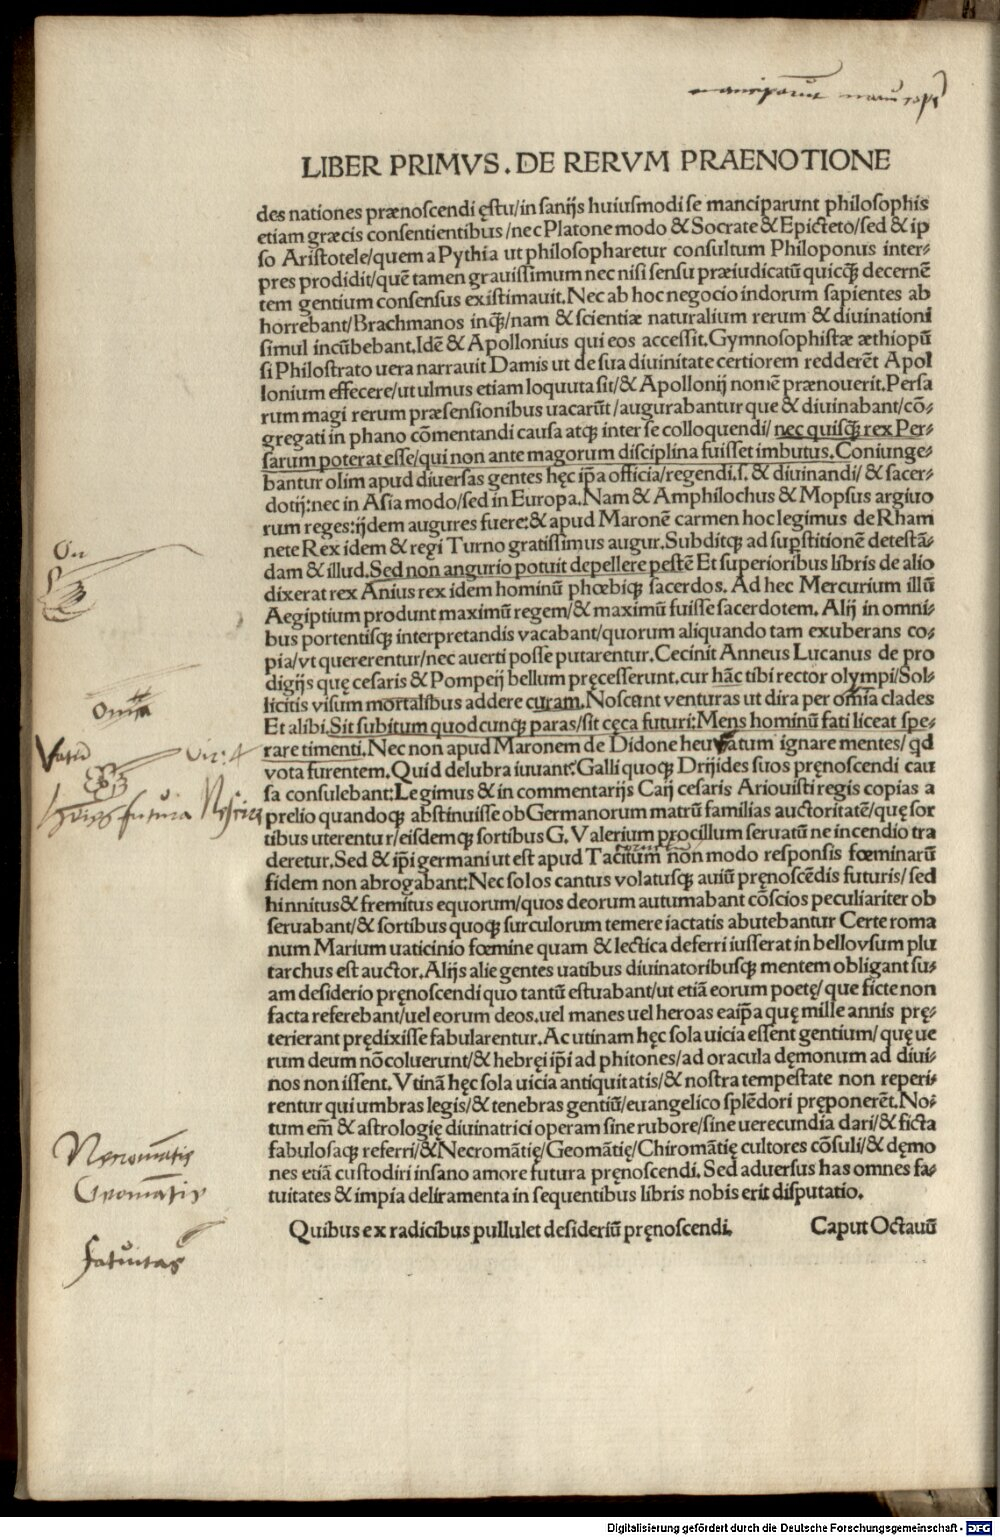 LIBER PRIMVS. DE RERVM PRAENOTIONE
des nationes prænoscendi ęstu/in sanijs huiusmodi se manciparunt philosophis
etiam græcis consentientibus/nec Platone modo & Socrate & Epicteto/sed & ip
so Aristotele/quem a Pythia ut philosopharetur consultum Philoponus inter-
pres prodidit/quē tamen grauissimum nec nisi sensu præiudicatū quicq̄ decernē
tem gentium consensus existimauit.Nec ab hoc negocio indorum sapientes ab
horrebant/Brachmanos inq̄/nam & scientiæ naturalium rerum & diuinationi
simul incūbebant.Idē & Apollonius qui eos accessit.Gymnosophistæ æthiopū
si Philostrato uera narrauit Damis ut de sua diuinitate certiorem redderēt Apol
lonium effecere/ut ulmus etiam loquuta sit/& Apollonij nomē prænouerit.Persa
rum magi rerum præsensionibus uacarūt/augurabantur que & diuinabant/cō-
gregati in phano cōmentandi causa atq; inter se colloquendi/nec quisq̄ rex Per-
sarum poterat esse/qui non ante magorum disciplina fuisset imbutus.Coniunge-
bantur olim apud diuersas gentes hęc ip̄a officia/regendi.s. & diuinandi/& sacer-
dotij:nec in Asia modo/sed in Europa.Nam & Amphilochus & Mopsus argiuo
rum reges:ijdem augures fuere:& apud Maronē carmen hoc legimus de Rham
nete Rex idem & regi Turno gratissimus augur.Subditq; ad sup̄stitionē detestā-
dam & illud.Sed non angurio potuit depellere pestē Et superioribus libris de alio
dixerat rex Anius rex idem hominū phœbiq; sacerdos. Ad hec Mercurium illū
Aegiptium produnt maximū regem/& maximū fuisse sacerdotem. Alij in omni-
bus portentisq; interpretandis vacabant/quorum aliquando tam exuberans co-
pia/vt quererentur/nec auerti posse putarentur.Cecinit Anneus Lucanus de pro
digijs quę cesaris & Pompeij bellum pręcesserunt.cur hāc tibi rector olympi/Sol-
licitis visum mortalibus addere curam.Noscant venturas ut dira per omīa clades
Et alibi.Sit subitum quodcunq; paras/sit cęca futuri:Mens hominū fati liceat spe-
rare timenti.Nec non apud Maronem de Didone heu vatum ignare mentes/qd
vota furentem.Quid delubra iuuant:Galli quoq; Drijides suos pręnoscendi cau
sa consulebant:Legimus & in commentarijs Caij cesaris Ariouisti regis copias a
prelio quandoq; abstinuisse ob Germanorum matrū familias auctoritatē/quę sor
tibus uterentur/eisdemq; sortibus G. Valerium procillum seruatū ne incendio tra
deretur.Sed & ip̄i germani ut est apud Tacitum non modo responsis fœminarū
fidem non abrogabant:Nec solos cantus volatusq; auiū pręnoscēdis futuris/sed
hinnitus& fremitus equorum/quos deorum autumabant cōscios peculiariter ob
seruabant/& sortibus quoq; surculorum temere iactatis abutebantur Certe roma
num Marium uaticinio fœmine quam & lectica deferri iusserat in bello vsum plu
tarchus est auctor.Alijs alie gentes uatibus diuinatoribusq; mentem obligant su-
am desiderio pręnoscendi quo tantū estuabant/ut etiā eorum poetę/que ficte non
facta referebant/uel eorum deos.uel manes uel heroas eaip̄a quę mille annis prę-
terierant prędixisse fabularentur.Ac utinam hęc sola uicia essent gentium/quę ue
rum deum nō coluerunt/& hebręi ip̄i ad phitones/ad oracula dęmonum ad diui-
nos non issent.Vtinā hęc sola uicia antiquitatis/& nostra tempestate non reperi-
rentur qui umbras legis/& tenebras gentiū/euangelico splēdori pręponerēt.No-
tum em̄ & astrologię diuinatrici operam sine rubore/sine uerecundia dari/& ficta
fabulosaq; referri/& Necromātię/Geomātię/Chiromātię cultores cōsuli/& dęmo
nes etiā custodiri insano amore futura pręnoscendi.Sed aduersus has omnes fa-
tuitates & impia deliramenta in sequentibus libris nobis erit disputatio.
Quibus ex radicibus pullulet desideriū pręnoscendi. Caput Octauū
Omīa
Necromātię
Geomātię
fatuitas
Digitalisierung gefördert durch die Deutsche Forschungsgemeinschaft - DFG